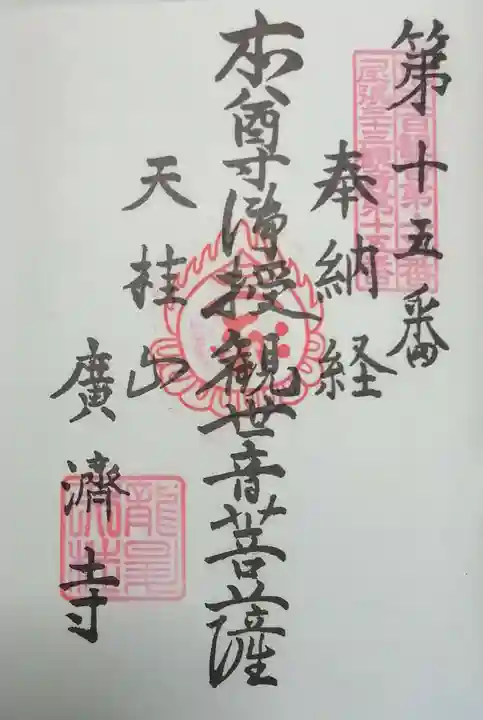 第十五番
奉納経
本尊淨授観世音菩薩
天桂山
廣濟寺